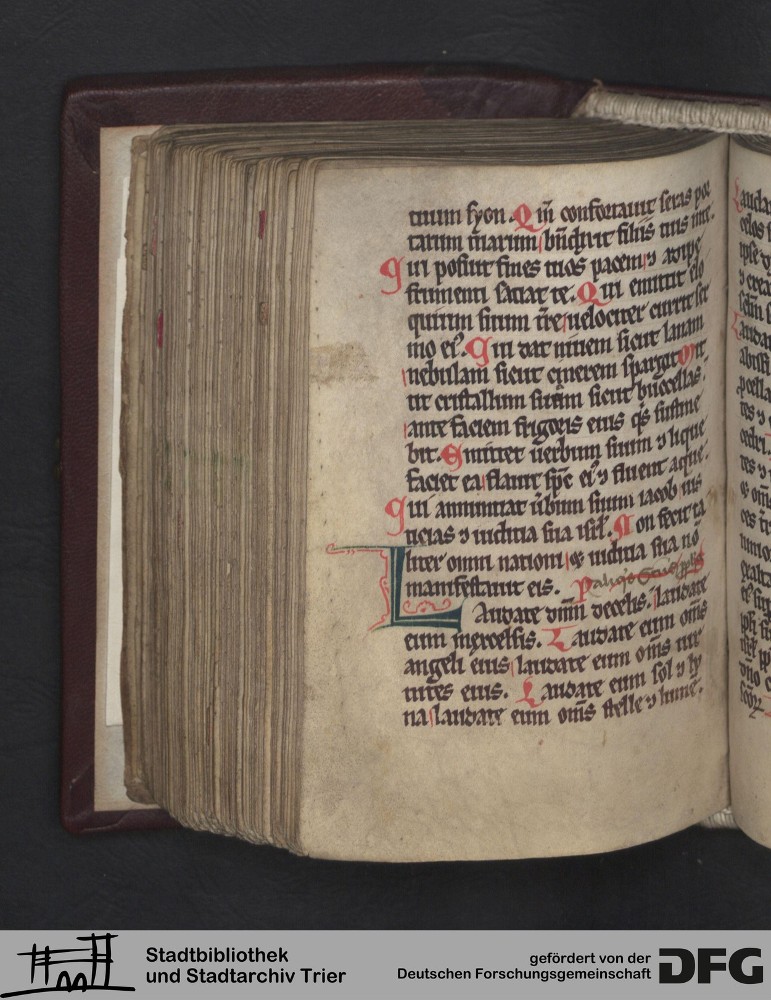 tuum syon. Qm̄ confortauit seras por
tarum tuarum bn̄dixit filiis tuis in te.
Qui posuit fines tuos pacem ⁊ adipe
frumenti satiat te. Qui emittit elo
quium suum t̄re uelociter currit ser
mo eiꝰ. Qui dat niuem sicut lanam
nebulam sicut cinerem spargit. Mit
tit cristallum suum sicut buccellas.
ante faciem frigoris eius qͥs sustine
bit. Emittet uerbum suum ⁊ lique
faciet ea flauit sp̄c eiꝰ ⁊ fluent aque.
Qui annuntiat u̇bum suum iacob ius
ticias ⁊ iudicia sua isrl̄. Non fecit ta
liter omni nationi ⁊ iudicia sua nō
manifestauit eis.
Laudate dn̄m de celis. laudate
eum in excelsis. Laudate eum om̄s
angeli eius laudate eum om̄s uir
tutes eius. Laudate eum sol ⁊ lu
na laudate eum om̄s stelle ⁊ lumē.
Stadtbibliothek
und Stadtarchiv Trier
gefördert von der
Deutschen Forschungsgemeinschaft
DFG